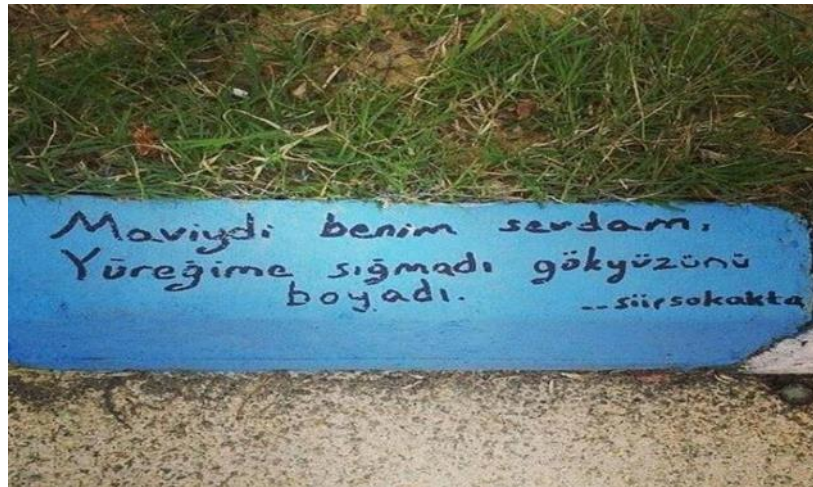 Maviydi benim sevdam,
Yüreğime sığmadı gökyüzünü
boyadı.
--siirsokakta